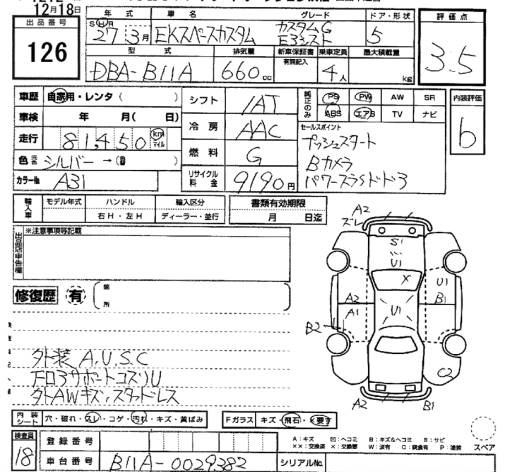 12月18日
出品番号
126
年式 車名 グレード ドア・形状
27年3月 EKスペースカスタム カスタムG 5
型式 排気量 新車保証書 乗車定員 最大積載量
有 記録簿
DBA-B11A 660cc 4人 kg
評価点
3.5
車歴 自家用・レンタ( )
車検 年 月( 日)
走行 81,450 km マイル
色 シルバー→( )
カラーNo. A31
シフト IAT
冷房 AAC
燃料 G
リサイクル料金 9190円
純正のみ PS PW AW SR
ABS エアB TV ナビ
セールスポイント
プッシュスタート
Bカメラ
パワースラ
内装評価
b
輸入車 モデル年式 ハンドル 輸入区分
右H・左H ディーラー・並行
書類有効期限
月 日迄
出品店申告欄
※注意事項等記載
修復歴 有 箇所
外装 A.U.S.C
外AWキズ、スタッドレス
A2
ズレ
S1
U1
X
U1
B1
A2
A1
U1
B2
C2
A2
B1
内装シート 穴・破れ・スレ・コゲ・汚れ・キズ・黄ばみ
Fガラス キズ・飛石・要
検査員
18
登録番号
車台番号 B11A-0029382
シリアルNo.
A:キズ ヘコミ B:キズ&ヘコミ S:サビ
××:交換済 ×:交換要 W:波有 C:腐食有 P:塗装
スペア